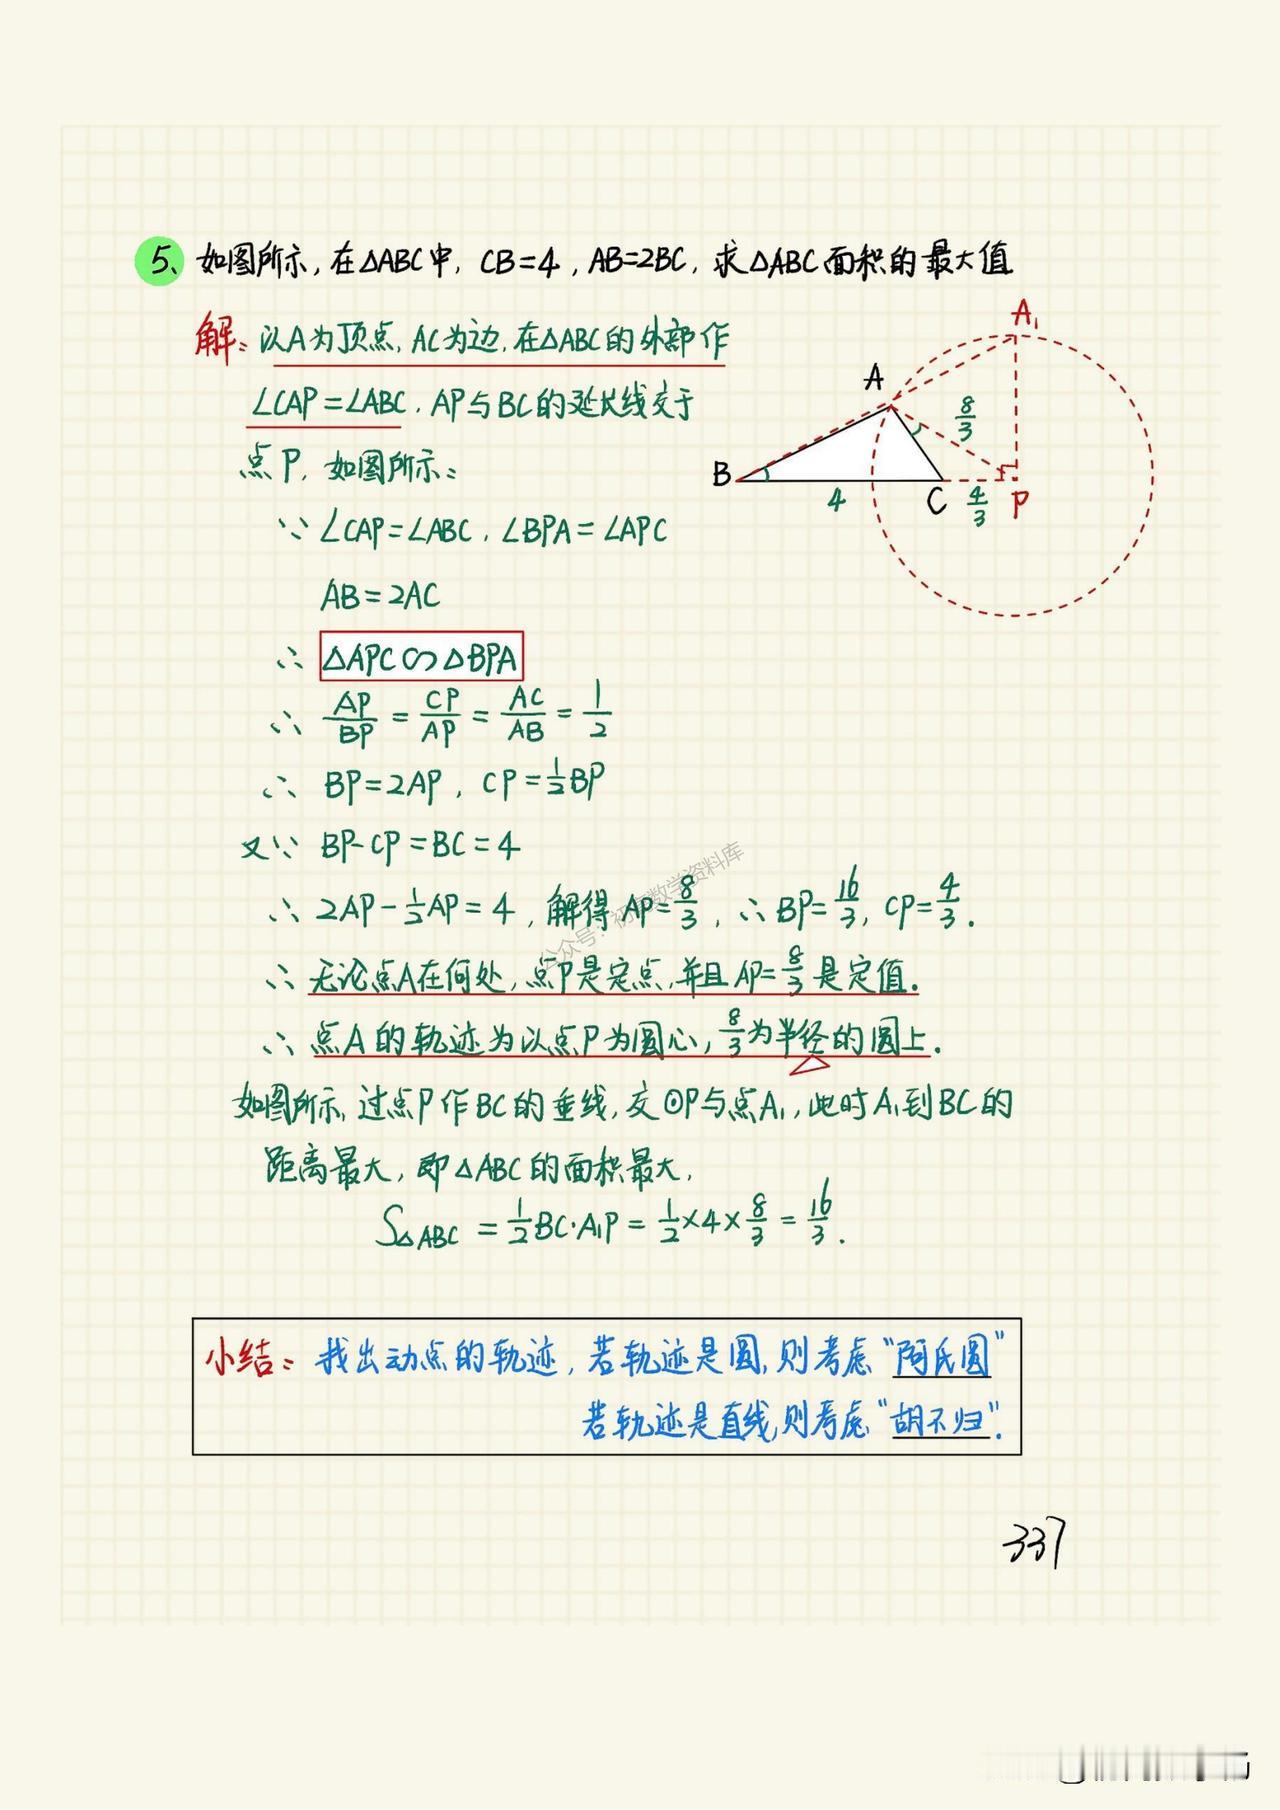 5、如图所示,在△ABC中,CB=4,AB=2BC,求△ABC面积的最大值
解:以A为顶点,AC为边,在△ABC的外部作
∠CAP=∠ABC,AP与BC的延长线交于
点P,如图所示:
∵∠CAP=∠ABC,∠BPA=∠APC
AB=2AC
∴△APC∽△BPA
∴AP/BP=CP/AP=AC/AB=1/2
∴BP=2AP,CP=1/2BP
又∵BP-CP=BC=4
∴2AP-1/2AP=4,解得AP=8/3,∴BP=16/3,CP=4/3.
∴无论点A在何处,点P是定点,并且AP=8/3是定值.
∴点A的轨迹为以点P为圆心,8/3为半径的圆上.
如图所示,过点P作BC的垂线,交⊙P与点A₁,此时A₁到BC的
距离最大,即△ABC的面积最大,
S△ABC=1/2BC·A₁P=1/2×4×8/3=16/3.
A₁
A
8/3
B
4
C
4/3
P
公众号:初高数学资料库
小结:找出动点的轨迹,若轨迹是圆,则考虑“阿氏圆”
若轨迹是直线,则考虑“胡不归”.
337